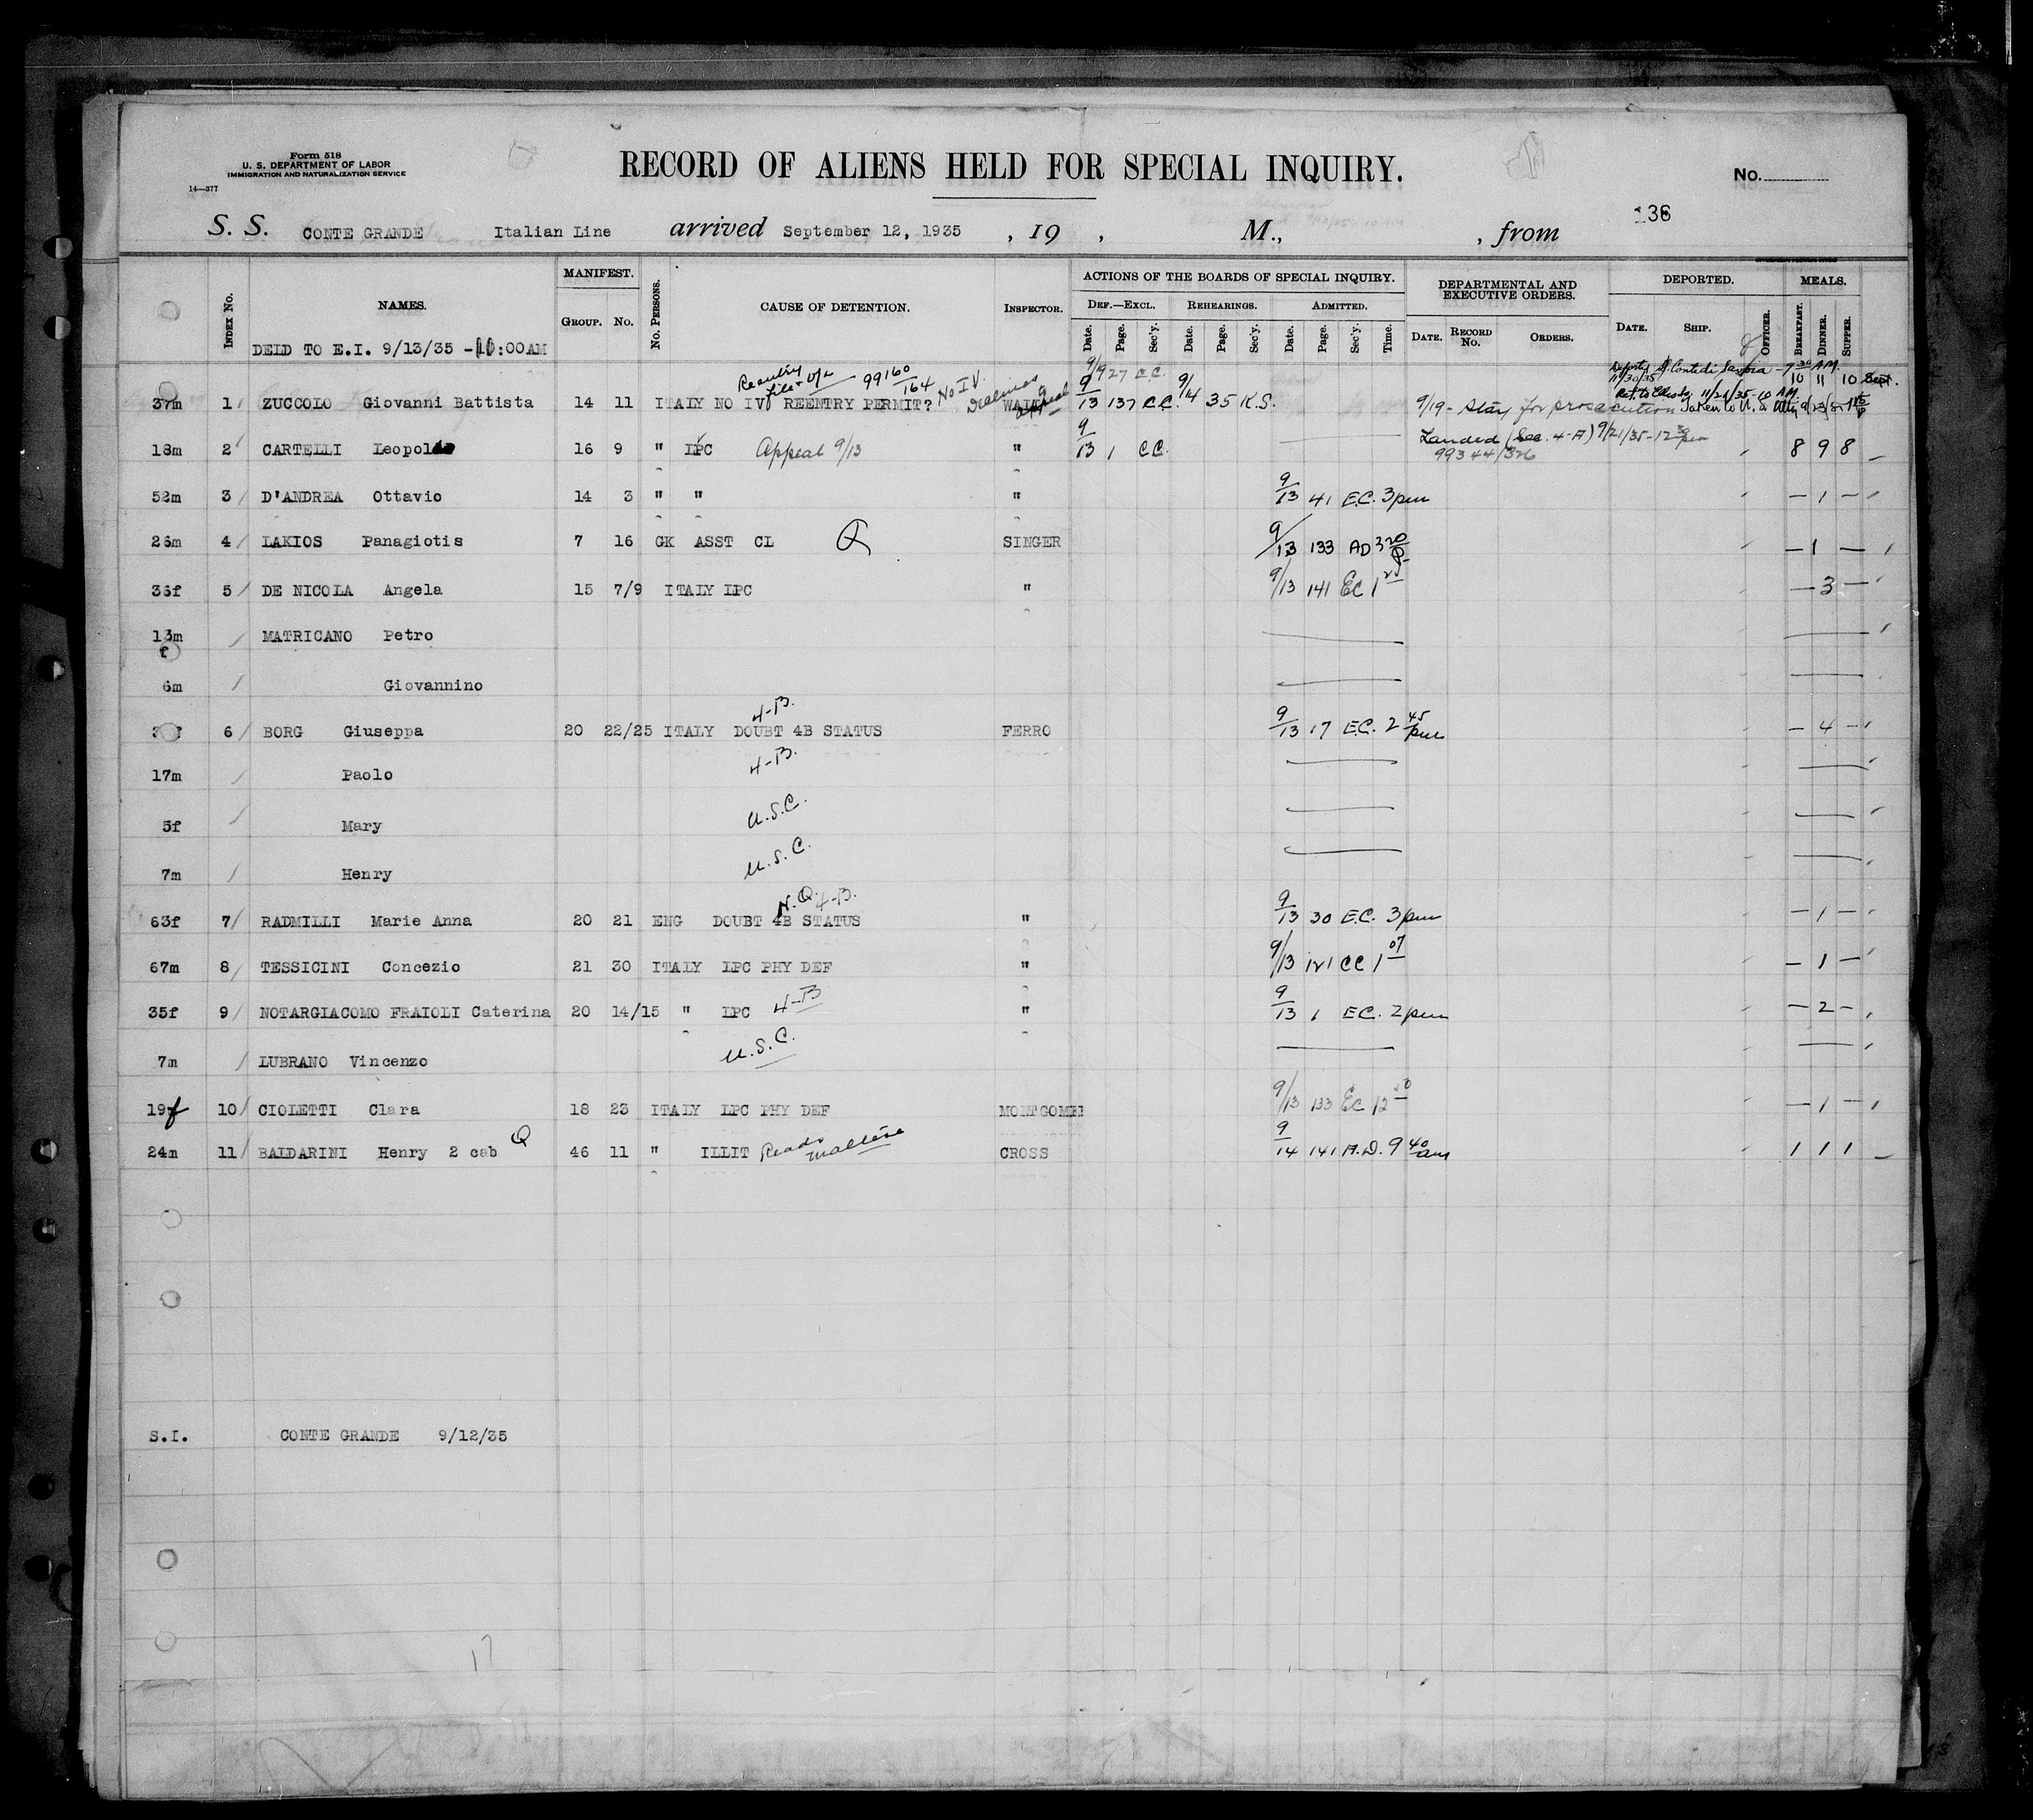 Form 518
U. S. DEPARTMENT OF LABOR
IMMIGRATION AND NATURALIZATION SERVICE
14—377
RECORD OF ALIENS HELD FOR SPECIAL INQUIRY.
No.
136
S. S. CONTE GRANDE Italian Line arrived September 12, 1935 , 19 , M., , from
INDEX NO. NAMES. MANIFEST. GROUP. NO. NO. PERSONS. CAUSE OF DETENTION. INSPECTOR. ACTIONS OF THE BOARDS OF SPECIAL INQUIRY. DEF.—EXCL. Date. Page. Sec'y. REHEARINGS. Date. Page. Sec'y. ADMITTED. Date. Page. Sec'y. Time. DEPARTMENTAL AND EXECUTIVE ORDERS. DATE. RECORD NO. ORDERS. DEPORTED. DATE. SHIP. OFFICER. MEALS. BREAKFAST. DINNER. SUPPER.
DELD TO E.I. 9/13/35 - :00AM
9/9 27 C.C. Deported Conte di Savoia - 7 30 A.M.
Reentry 99160/164 No I.V. 11/30/35 10 11 10 Sept.
37m 1 ZUCCOLO Giovanni Battista 14 11 ITALY NO IV REENTRY PERMIT? 9/13 137 C.C. 9/14 35 K.S. 9/19 - Stay for prosecution Taken to U. S. Atty
18m 2 CARTELLI 16 9 " LPC Appeal 9/13 " 9/13 1 C.C. Landed (Sec. 4-A) 9/21/35 - 12 30 pm 8 9 8
99344/326
52m 3 D'ANDREA Ottavio 14 3 " " " 9/13 41 E.C. 3 pm — 1 —
26m 4 LAKIOS Panagiotis 7 16 GK ASST CL Q SINGER 9/13 133 AD 3 20 P — 1 —
36f 5 DE NICOLA Angela 15 7/9 ITALY LPC " 9/13 141 EC 1 25 — 3 —
13m MATRICANO Petro
f
6m Giovannino
4-B.
6 BORG Giuseppa 20 22/25 ITALY DOUBT 4B STATUS FERRO 9/13 17 E.C. 2 45 pm — 4 —
17m Paolo 4-B.
5f Mary U.S.C.
7m Henry U.S.C.
N.Q. 4-B.
63f 7 RADMILLI Marie Anna 20 21 ENG DOUBT 4B STATUS " 9/13 30 E.C. 3 pm — 1 —
67m 8 TESSICINI Concezio 21 30 ITALY LPC PHY DEF " 9/13 121 CC 1 07 — 1 —
35f 9 NOTARGIACOMO FRAIOLI Caterina 20 14/15 " LPC 4-B " 9/13 1 E.C. 2 pm — 2 —
7m LUBRANO Vincenzo U.S.C.
19f 10 CIOLETTI Clara 18 23 ITALY LPC PHY DEF 9/13 133 EC 12 50 — 1 —
24m 11 BALDARINI Henry 2 cab Q 46 11 " ILLIT Reads Maltese CROSS 9/14 141 A.D. 9 40 am 1 1 1
S.I. CONTE GRANDE 9/12/35
17